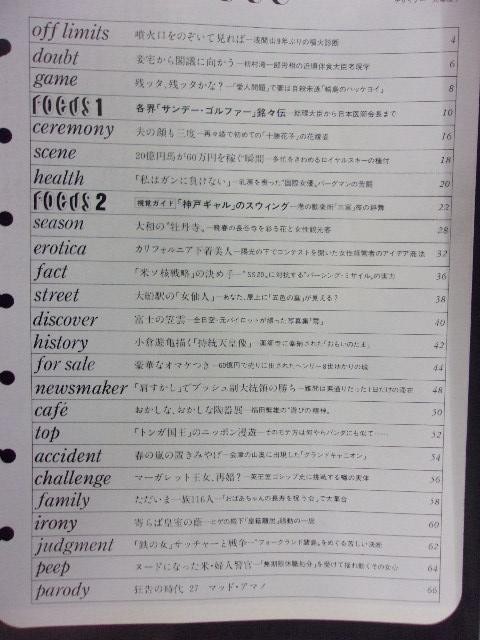 off limits 噴火口をのぞいて見れば―浅間山9年ぶりの噴火診断 4
doubt 妾宅から閣議に向かう 6
game 残ッタ、残ッタかな?―「愛人問題」で妻は自殺未遂「輪島のハッケヨイ」 8
FOCUS 1 各界「サンデー・ゴルファー」銘々伝―総理大臣から日本医師会長まで 10
ceremony 夫の顔も三度―再々婚で初めての「十勝花子」の花嫁姿 16
scene 20億円馬が60万円を稼ぐ瞬間―多忙をきわめるロイヤルスキーの種付 18
health 「私はガンに負けない」―乳房を奪った"国際女優"バーグマンの苦闘 20
FOCUS 2 視覚ガイド「神戸ギャル」のスウィング―港の歓楽街"三宮"夜の鼓舞 22
season 大和の"牡丹寺"―晩春の長谷寺を彩る花と女性観光客 28
erotica カリフォルニア下着美人―陽光の下でコンテストを開いた女性経営者のアイデア商法 32
fact 「米ソ核戦略」の決め手―"SS20"に対抗する"パーシング・ミサイル"の実力 36
street 大船駅の「女仙人」―あなた、屋上に「五色の嵐」が見える? 38
discover 富士の笠雲―全日空・元パイロットが撮った写真集「雲」 40
history 小倉遊亀描く「持統天皇像」―薬師寺に奉納された「おもいのたま」 42
for sale 豪華なオマケつき―60億円で売りに出されたヘンリー8世ゆかりの城 44
newsmaker 「肩すかし」でブッシュ副大統領の勝ち―難問は素通りだった1日だけの滞在 48
café おかしな、おかしな陶器展―福田繁雄の"遊びの精神" 50
top 「トンガ国王」のニッポン漫遊―そのモテ方は何やらパンダにも似て…… 52
accident 春の嵐の置きみやげ―会津の山奥に出現した「グランドキャニオン」 54
challenge マーガレット王女、再婚?―英王室ゴシップ史に挑戦する噂の実体 56
family ただいま一族116人―「おばあちゃんの長寿を祝う会」で大集合 58
irony 寄らば皇室の蔭―ヒゲの殿下「皇籍離脱」騒動の一席 60
judgment 「鉄の女」サッチャーと戦争―"フォークランド諸島"をめぐる苦しい決断 62
peep ヌードになった米・婦人警官―「無期限休職処分」を受けて揺れ動くその女心 64
parody 狂告の時代 27 マッド・アマノ 66